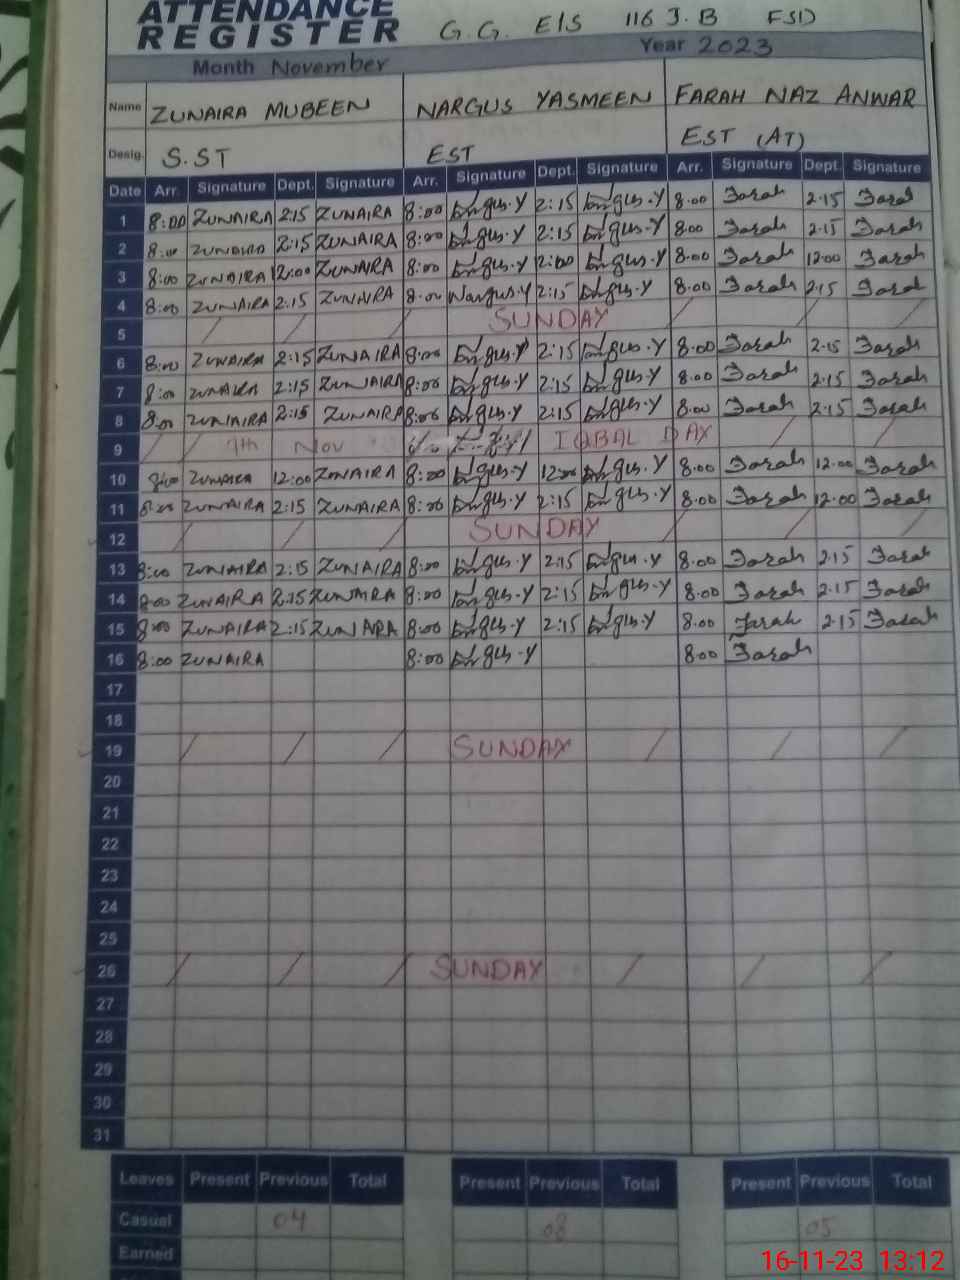 ATTENDANCE
REGISTER G.G. E/S 116 J.B FSD
Month November Year 2023
Name ZUNAIRA MUBEEN NARGUS YASMEEN FARAH NAZ ANWAR
Desig. S.ST EST EST (AT)
Date Arr. Signature Dept. Signature Arr. Signature Dept. Signature Arr. Signature Dept. Signature
1 8:00 ZUNAIRA 2:15 ZUNAIRA 8:00 2:15 8.00 Farah 2.15 Farah
2 8:00 ZUNAIRA 2:15 ZUNAIRA 8:00 2:15 8.00 Farah 2.15 Farah
3 8:00 ZUNAIRA 12:00 ZUNAIRA 8:00 12:00 8.00 Farah 12.00 Farah
4 8:00 ZUNAIRA 2:15 ZUNAIRA 8:00 Nargus.Y 2:15 8.00 Farah 2.15 Farah
5 / / / SUNDAY / / /
6 8:00 ZUNAIRA 2:15 ZUNAIRA 8:00 2:15 8.00 Farah 2.15 Farah
7 8:00 ZUNAIRA 2:15 ZUNAIRA 8:00 2:15 8.00 Farah 2.15 Farah
8 8:00 ZUNAIRA 2:15 ZUNAIRA 8:00 2:15 8.00 Farah 2.15 Farah
9 / / 9th Nov IQBAL DAY / /
10 8:00 ZUNAIRA 12:00 ZUNAIRA 8:00 12:00 8.00 Farah 12.00 Farah
11 8:00 ZUNAIRA 2:15 ZUNAIRA 8:00 2:15 8.00 Farah 12.00 Farah
12 / / / SUNDAY / / /
13 8:00 ZUNAIRA 2:15 ZUNAIRA 8:00 2:15 8.00 Farah 2.15 Farah
14 8:00 ZUNAIRA 2:15 ZUNAIRA 8:00 2:15 8.00 Farah 2.15 Farah
15 8:00 ZUNAIRA 2:15 ZUNAIRA 8:00 2:15 8.00 Farah 2.15 Farah
16 8:00 ZUNAIRA 8:00 8.00 Farah
17
18
19 / / / SUNDAY / / /
20
21
22
23
24
25
26 / / / SUNDAY / / /
27
28
29
30
31
Leaves Present Previous Total Present Previous Total Present Previous Total
Casual 04 08 05
Earned
16-11-23 13:12